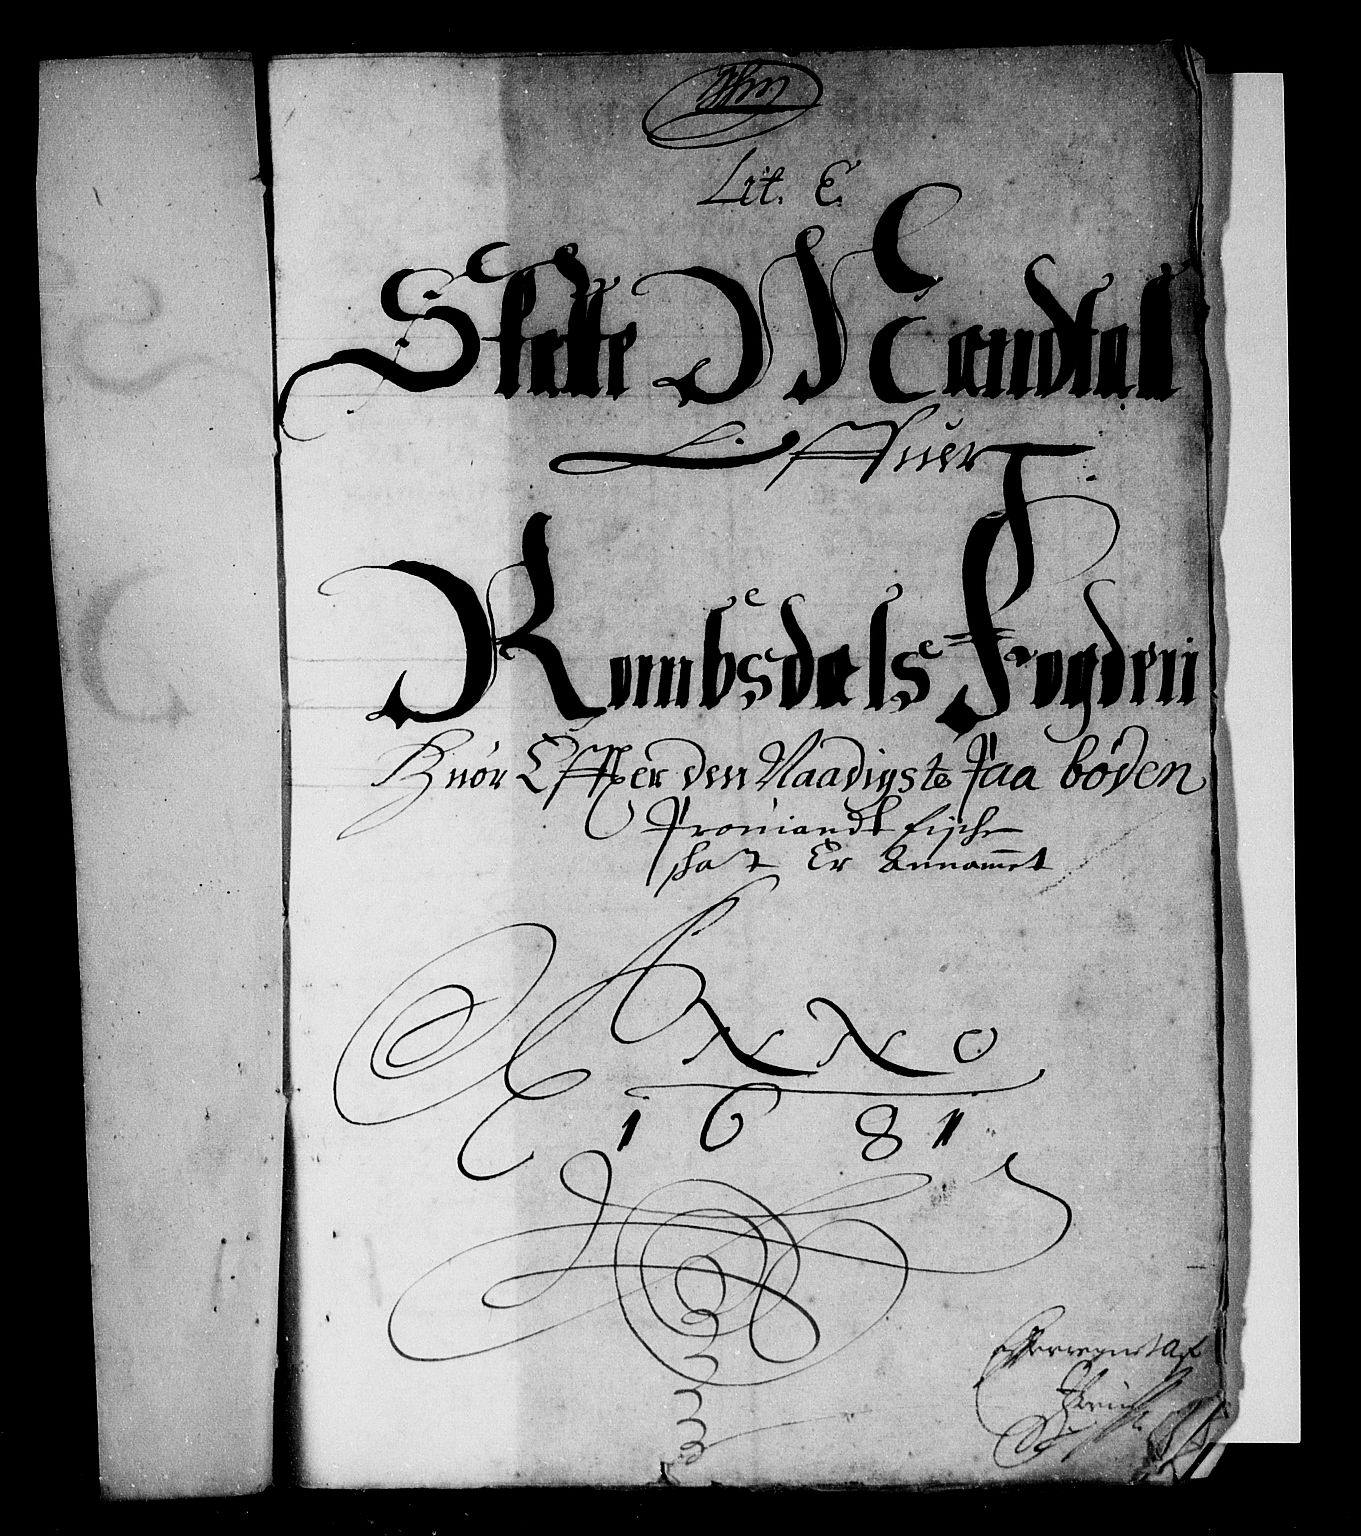 Lit. E.
Skatte Mandtal
Offuer
Rombsdals Fogderi
Huor Effter den Naadigste Paa böden
Prouiandt
Er Annammet
ANNO
1681